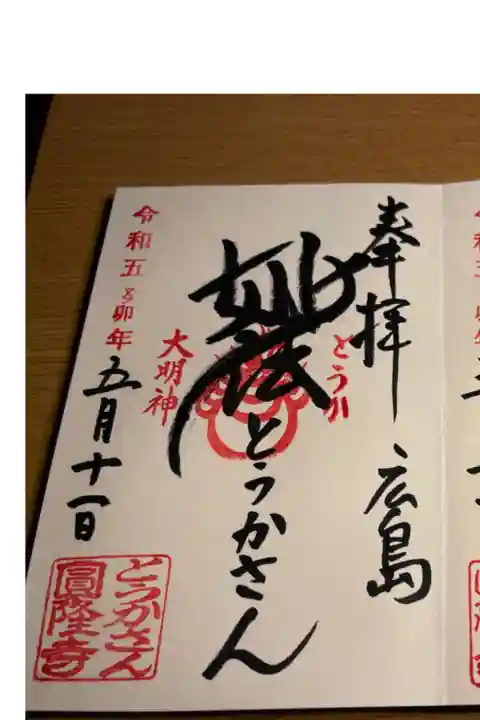 奉拝 広島
とうか
妙法 とうかさん
大明神
令和五年
卯年
五月十一日
とうかさん
圓隆寺